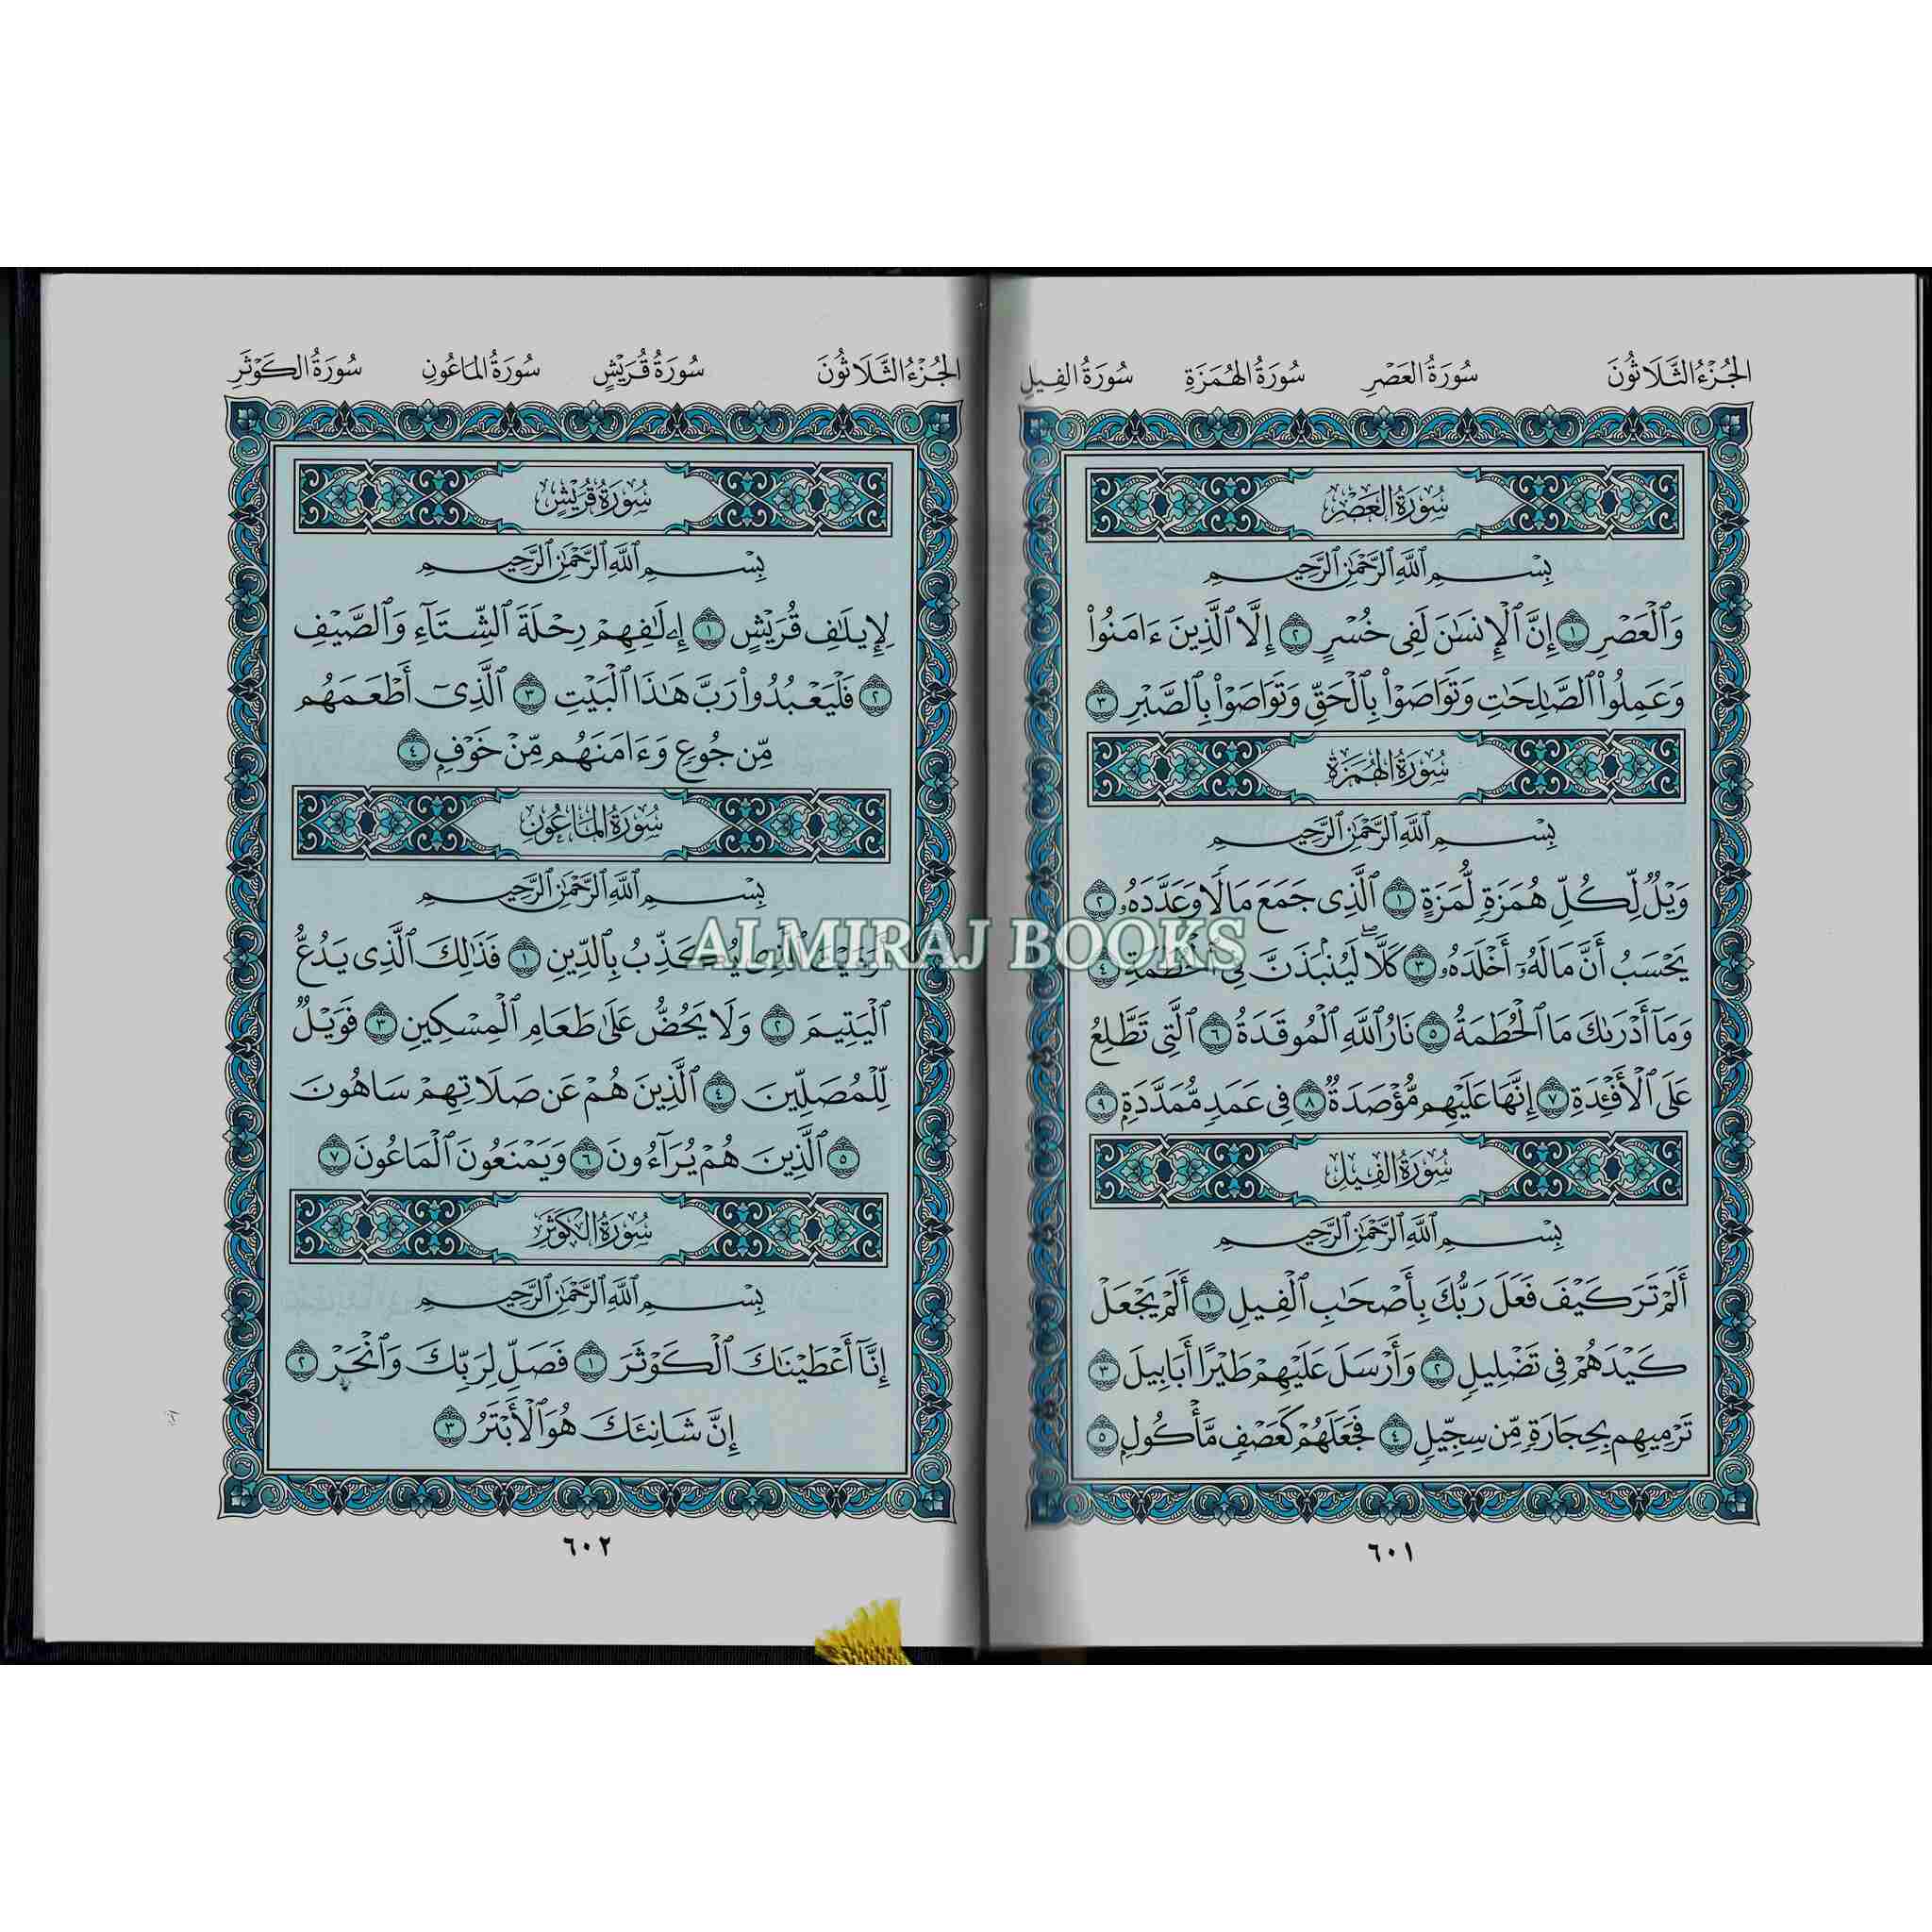 الجُزْءُ الثَّلَاثُونَ سُورَةُ العَصْرِ سُورَةُ الهُمَزَةِ سُورَةُ الفِيلِ
سُورَةُ العَصْرِ
بِسْمِ ٱللَّهِ ٱلرَّحْمَٰنِ ٱلرَّحِيمِ
وَٱلْعَصْرِ ١ إِنَّ ٱلْإِنسَٰنَ لَفِى خُسْرٍ ٢ إِلَّا ٱلَّذِينَ ءَامَنُوا۟
وَعَمِلُوا۟ ٱلصَّٰلِحَٰتِ وَتَوَاصَوْا۟ بِٱلْحَقِّ وَتَوَاصَوْا۟ بِٱلصَّبْرِ ٣
سُورَةُ الهُمَزَةِ
بِسْمِ ٱللَّهِ ٱلرَّحْمَٰنِ ٱلرَّحِيمِ
وَيْلٌ لِّكُلِّ هُمَزَةٍ لُّمَزَةٍ ١ ٱلَّذِى جَمَعَ مَالًا وَعَدَّدَهُۥ ٢
يَحْسَبُ أَنَّ مَالَهُۥٓ أَخْلَدَهُۥ ٣ كَلَّا ۖ لَيُنۢبَذَنَّ فِى ٱلْحُطَمَةِ ٤
وَمَآ أَدْرَىٰكَ مَا ٱلْحُطَمَةُ ٥ نَارُ ٱللَّهِ ٱلْمُوقَدَةُ ٦ ٱلَّتِى تَطَّلِعُ
عَلَى ٱلْأَفْـِٔدَةِ ٧ إِنَّهَا عَلَيْهِم مُّؤْصَدَةٌ ٨ فِى عَمَدٍ مُّمَدَّدَةٍۭ ٩
سُورَةُ الفِيلِ
بِسْمِ ٱللَّهِ ٱلرَّحْمَٰنِ ٱلرَّحِيمِ
أَلَمْ تَرَ كَيْفَ فَعَلَ رَبُّكَ بِأَصْحَٰبِ ٱلْفِيلِ ١ أَلَمْ يَجْعَلْ
كَيْدَهُمْ فِى تَضْلِيلٍ ٢ وَأَرْسَلَ عَلَيْهِمْ طَيْرًا أَبَابِيلَ ٣
تَرْمِيهِم بِحِجَارَةٍ مِّن سِجِّيلٍ ٤ فَجَعَلَهُمْ كَعَصْفٍ مَّأْكُولٍۭ ٥
٦٠١
الجُزْءُ الثَّلَاثُونَ سُورَةُ قُرَيْشٍ سُورَةُ المَاعُونِ سُورَةُ الكَوْثَرِ
سُورَةُ قُرَيْشٍ
بِسْمِ ٱللَّهِ ٱلرَّحْمَٰنِ ٱلرَّحِيمِ
لِإِيلَٰفِ قُرَيْشٍ ١ إِۦلَٰفِهِمْ رِحْلَةَ ٱلشِّتَآءِ وَٱلصَّيْفِ
٢ فَلْيَعْبُدُوا۟ رَبَّ هَٰذَا ٱلْبَيْتِ ٣ ٱلَّذِىٓ أَطْعَمَهُم
مِّن جُوعٍ وَءَامَنَهُم مِّنْ خَوْفٍۭ ٤
سُورَةُ المَاعُونِ
بِسْمِ ٱللَّهِ ٱلرَّحْمَٰنِ ٱلرَّحِيمِ
يُكَذِّبُ بِٱلدِّينِ ١ فَذَٰلِكَ ٱلَّذِى يَدُعُّ
ٱلْيَتِيمَ ٢ وَلَا يَحُضُّ عَلَىٰ طَعَامِ ٱلْمِسْكِينِ ٣ فَوَيْلٌ
لِّلْمُصَلِّينَ ٤ ٱلَّذِينَ هُمْ عَن صَلَاتِهِمْ سَاهُونَ
٥ ٱلَّذِينَ هُمْ يُرَآءُونَ ٦ وَيَمْنَعُونَ ٱلْمَاعُونَ ٧
سُورَةُ الكَوْثَرِ
بِسْمِ ٱللَّهِ ٱلرَّحْمَٰنِ ٱلرَّحِيمِ
إِنَّآ أَعْطَيْنَٰكَ ٱلْكَوْثَرَ ١ فَصَلِّ لِرَبِّكَ وَٱنْحَرْ ٢
إِنَّ شَانِئَكَ هُوَ ٱلْأَبْتَرُ ٣
٦٠٢
ALMIRAJ BOOKS